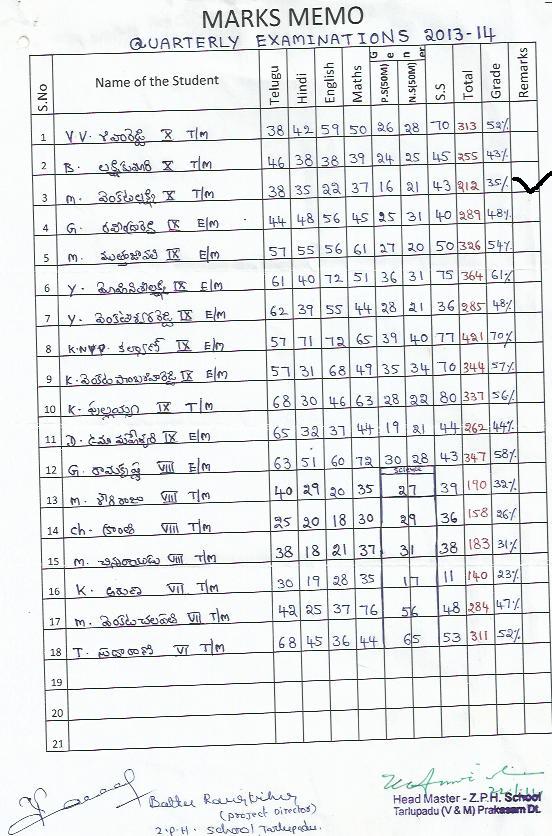 MARKS MEMO
QUARTERLY EXAMINATIONS 2013-14
S.No Name of the Student Telugu Hindi English Maths General P.S(50M) N.S(50M) S.S Total Grade Remarks
1 V.V. X T/M 38 42 59 50 26 28 70 313 52%
2 B. లక్ష్మీకుమారి X T/M 46 38 38 39 24 25 45 255 43%
3 M. వెంకటలక్ష్మి X T/M 38 35 22 37 16 21 43 212 35%
4 G. IX E/M 44 48 56 45 25 31 40 289 48%
5 M. IX E/M 57 55 56 61 27 20 50 326 54%
6 Y. IX E/M 61 40 72 51 36 31 75 364 61%
7 Y. వెంకటేశ్వరరెడ్డి IX E/M 62 39 55 44 28 21 36 285 48%
8 కళ్యాణి IX E/M 57 71 72 65 39 40 77 421 70%
9 K. IX E/M 57 31 68 49 35 34 70 344 57%
10 K. పుల్లయ్య IX T/M 68 30 46 63 28 22 80 337 56%
11 D. ఉమా మహేశ్వరి IX E/M 65 32 37 44 19 21 44 262 44%
12 G. రామకృష్ణ VIII E/M 63 51 60 72 30 28 43 347 58%
Science
13 M. VIII T/M 40 29 20 35 27 39 190 32%
14 Ch. క్రాంతి VIII T/M 25 20 18 30 29 36 158 26%
15 M. చినరాయుడు VIII T/M 38 18 21 37 31 38 183 31%
16 K. అరుణ VII T/M 30 19 28 35 17 11 140 23%
17 M. వెంకటచలపతి VII T/M 42 25 37 76 56 48 284 47%
18 T. సుధారాణి VI T/M 68 45 36 44 65 53 311 52%
19
20
21
(Project Director)
Z.P.H. School Tarlupadu.
Head Master - Z.P.H. School
Tarlupadu (V & M) Prakasam Dt.